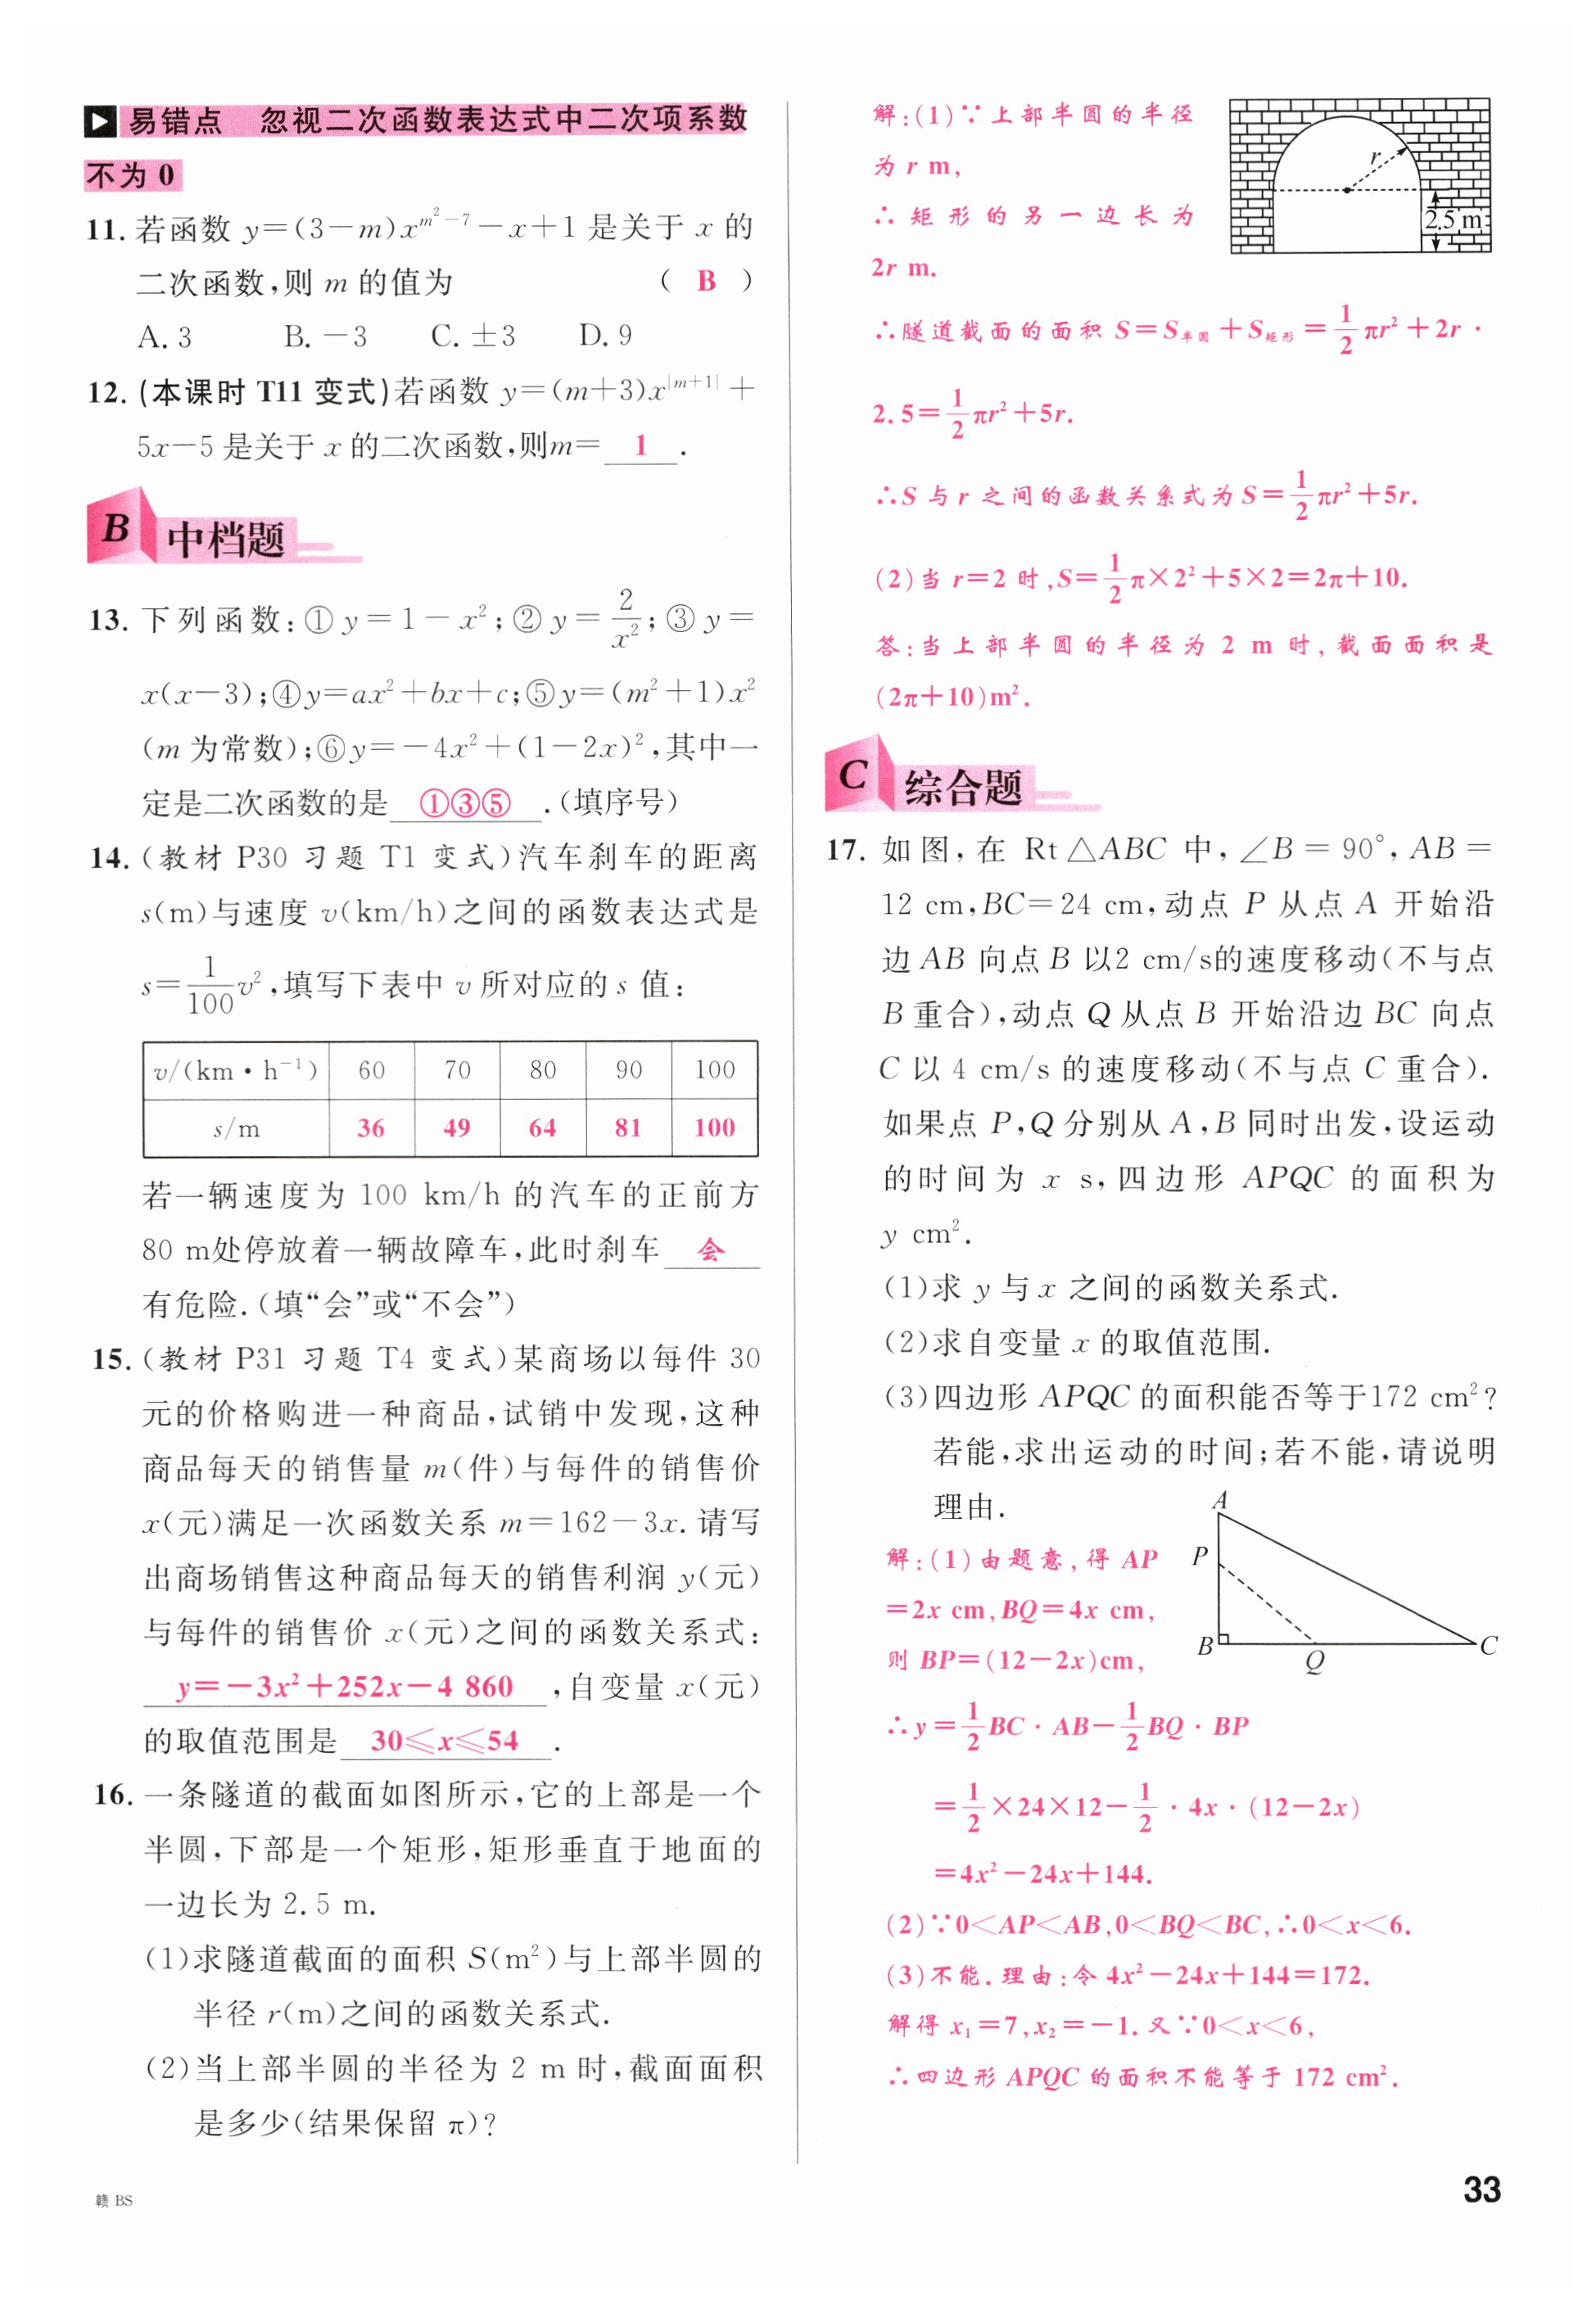 易错点 忽视二次函数表达式中二次项系数
不为 0
11. 若函数 y=(3-m)x^{m²-7}-x+1 是关于 x 的
二次函数,则 m 的值为 ( B )
A. 3 B. -3 C. ±3 D. 9
12. (本课时 T11 变式)若函数 y=(m+3)x^{|m+1|}+
5x-5 是关于 x 的二次函数,则m= 1 .
B 中档题
13. 下列函数:①y=1-x²;②y=2/x²;③y=
x(x-3);④y=ax²+bx+c;⑤y=(m²+1)x²
(m 为常数);⑥y=-4x²+(1-2x)²,其中一
定是二次函数的是 ①③⑤ .(填序号)
14. (教材 P30 习题 T1 变式)汽车刹车的距离
s(m)与速度 v(km/h)之间的函数表达式是
s=1/100 v²,填写下表中 v 所对应的 s 值:
v/(km·h⁻¹) 60 70 80 90 100
s/m 36 49 64 81 100
若一辆速度为 100 km/h 的汽车的正前方
80 m处停放着一辆故障车,此时刹车 会
有危险.(填“会”或“不会”)
15. (教材 P31 习题 T4 变式)某商场以每件 30
元的价格购进一种商品,试销中发现,这种
商品每天的销售量 m(件)与每件的销售价
x(元)满足一次函数关系 m=162-3x. 请写
出商场销售这种商品每天的销售利润 y(元)
与每件的销售价 x(元)之间的函数关系式:
y=-3x²+252x-4 860 ,自变量 x(元)
的取值范围是 30≤x≤54 .
16. 一条隧道的截面如图所示,它的上部是一个
半圆,下部是一个矩形,矩形垂直于地面的
一边长为 2.5 m.
(1)求隧道截面的面积 S(m²)与上部半圆的
半径 r(m)之间的函数关系式.
(2)当上部半圆的半径为 2 m 时,截面面积
是多少(结果保留 π)?
赣 BS
解:(1)∵上部半圆的半径
为 r m,
∴矩形的另一边长为
2r m.
r
2.5 m
∴隧道截面的面积 S=S半圆+S矩形=1/2 πr²+2r·
2.5=1/2 πr²+5r.
∴S 与 r 之间的函数关系式为 S=1/2 πr²+5r.
(2)当 r=2 时,S=1/2 π×2²+5×2=2π+10.
答:当上部半圆的半径为 2 m 时,截面面积是
(2π+10)m².
C 综合题
17. 如图,在 Rt△ABC 中,∠B=90°,AB=
12 cm,BC=24 cm,动点 P 从点 A 开始沿
边 AB 向点 B 以2 cm/s的速度移动(不与点
B 重合),动点 Q 从点 B 开始沿边 BC 向点
C 以 4 cm/s 的速度移动(不与点 C 重合).
如果点 P,Q 分别从 A,B 同时出发,设运动
的时间为 x s,四边形 APQC 的面积为
y cm².
(1)求 y 与 x 之间的函数关系式.
(2)求自变量 x 的取值范围.
(3)四边形 APQC 的面积能否等于172 cm²?
若能,求出运动的时间;若不能,请说明
理由.
A
P
B
Q
C
解:(1)由题意,得 AP
=2x cm,BQ=4x cm,
则 BP=(12-2x)cm,
∴y=1/2 BC·AB-1/2 BQ·BP
=1/2×24×12-1/2·4x·(12-2x)
=4x²-24x+144.
(2)∵0<AP<AB,0<BQ<BC,∴0<x<6.
(3)不能.理由:令 4x²-24x+144=172.
解得 x₁=7,x₂=-1.又∵0<x<6,
∴四边形 APQC 的面积不能等于 172 cm².
33